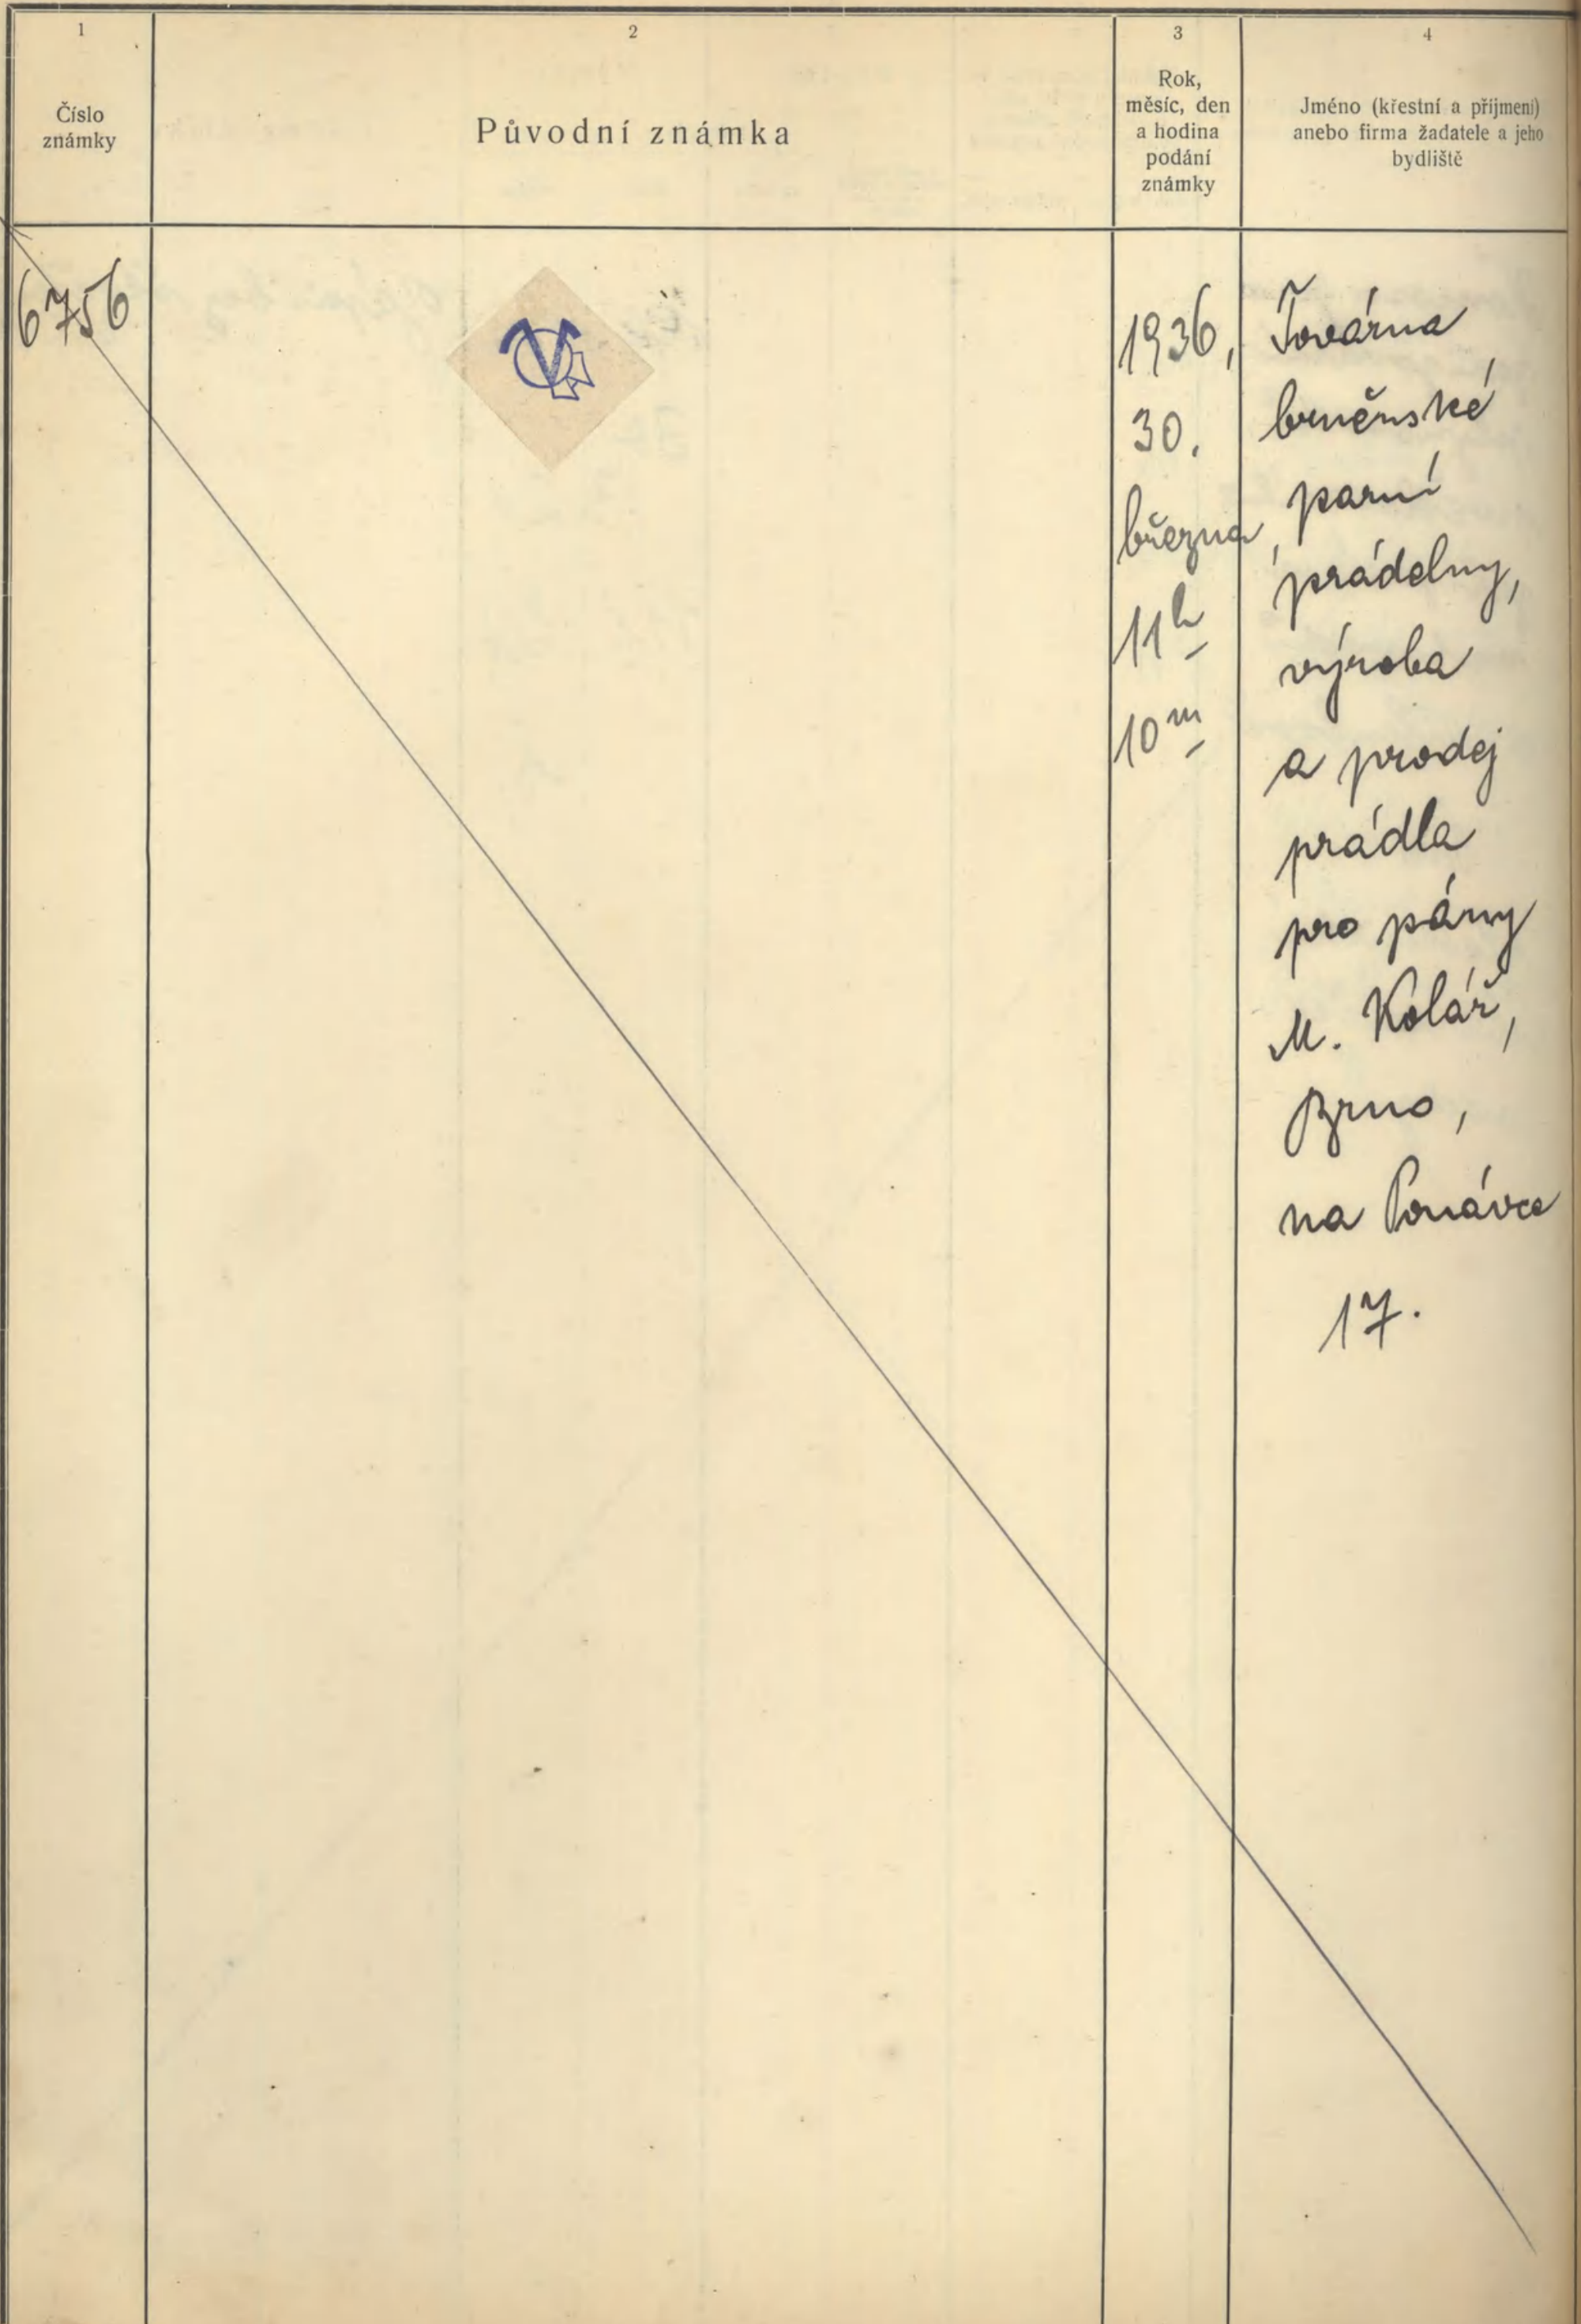 1
Číslo
známky
2
Původní známka
3
Rok,
měsíc, den
a hodina
podání
známky
4
Jméno (křestní a příjmení)
anebo firma žadatele a jeho
bydliště
6756
1936,
30.
března,
11h
10m
Továrna
brněnské
parní
prádelny,
výroba
a prodej
prádla
pro pány
M. Kolář,
Brno,
na Ponávce
17.